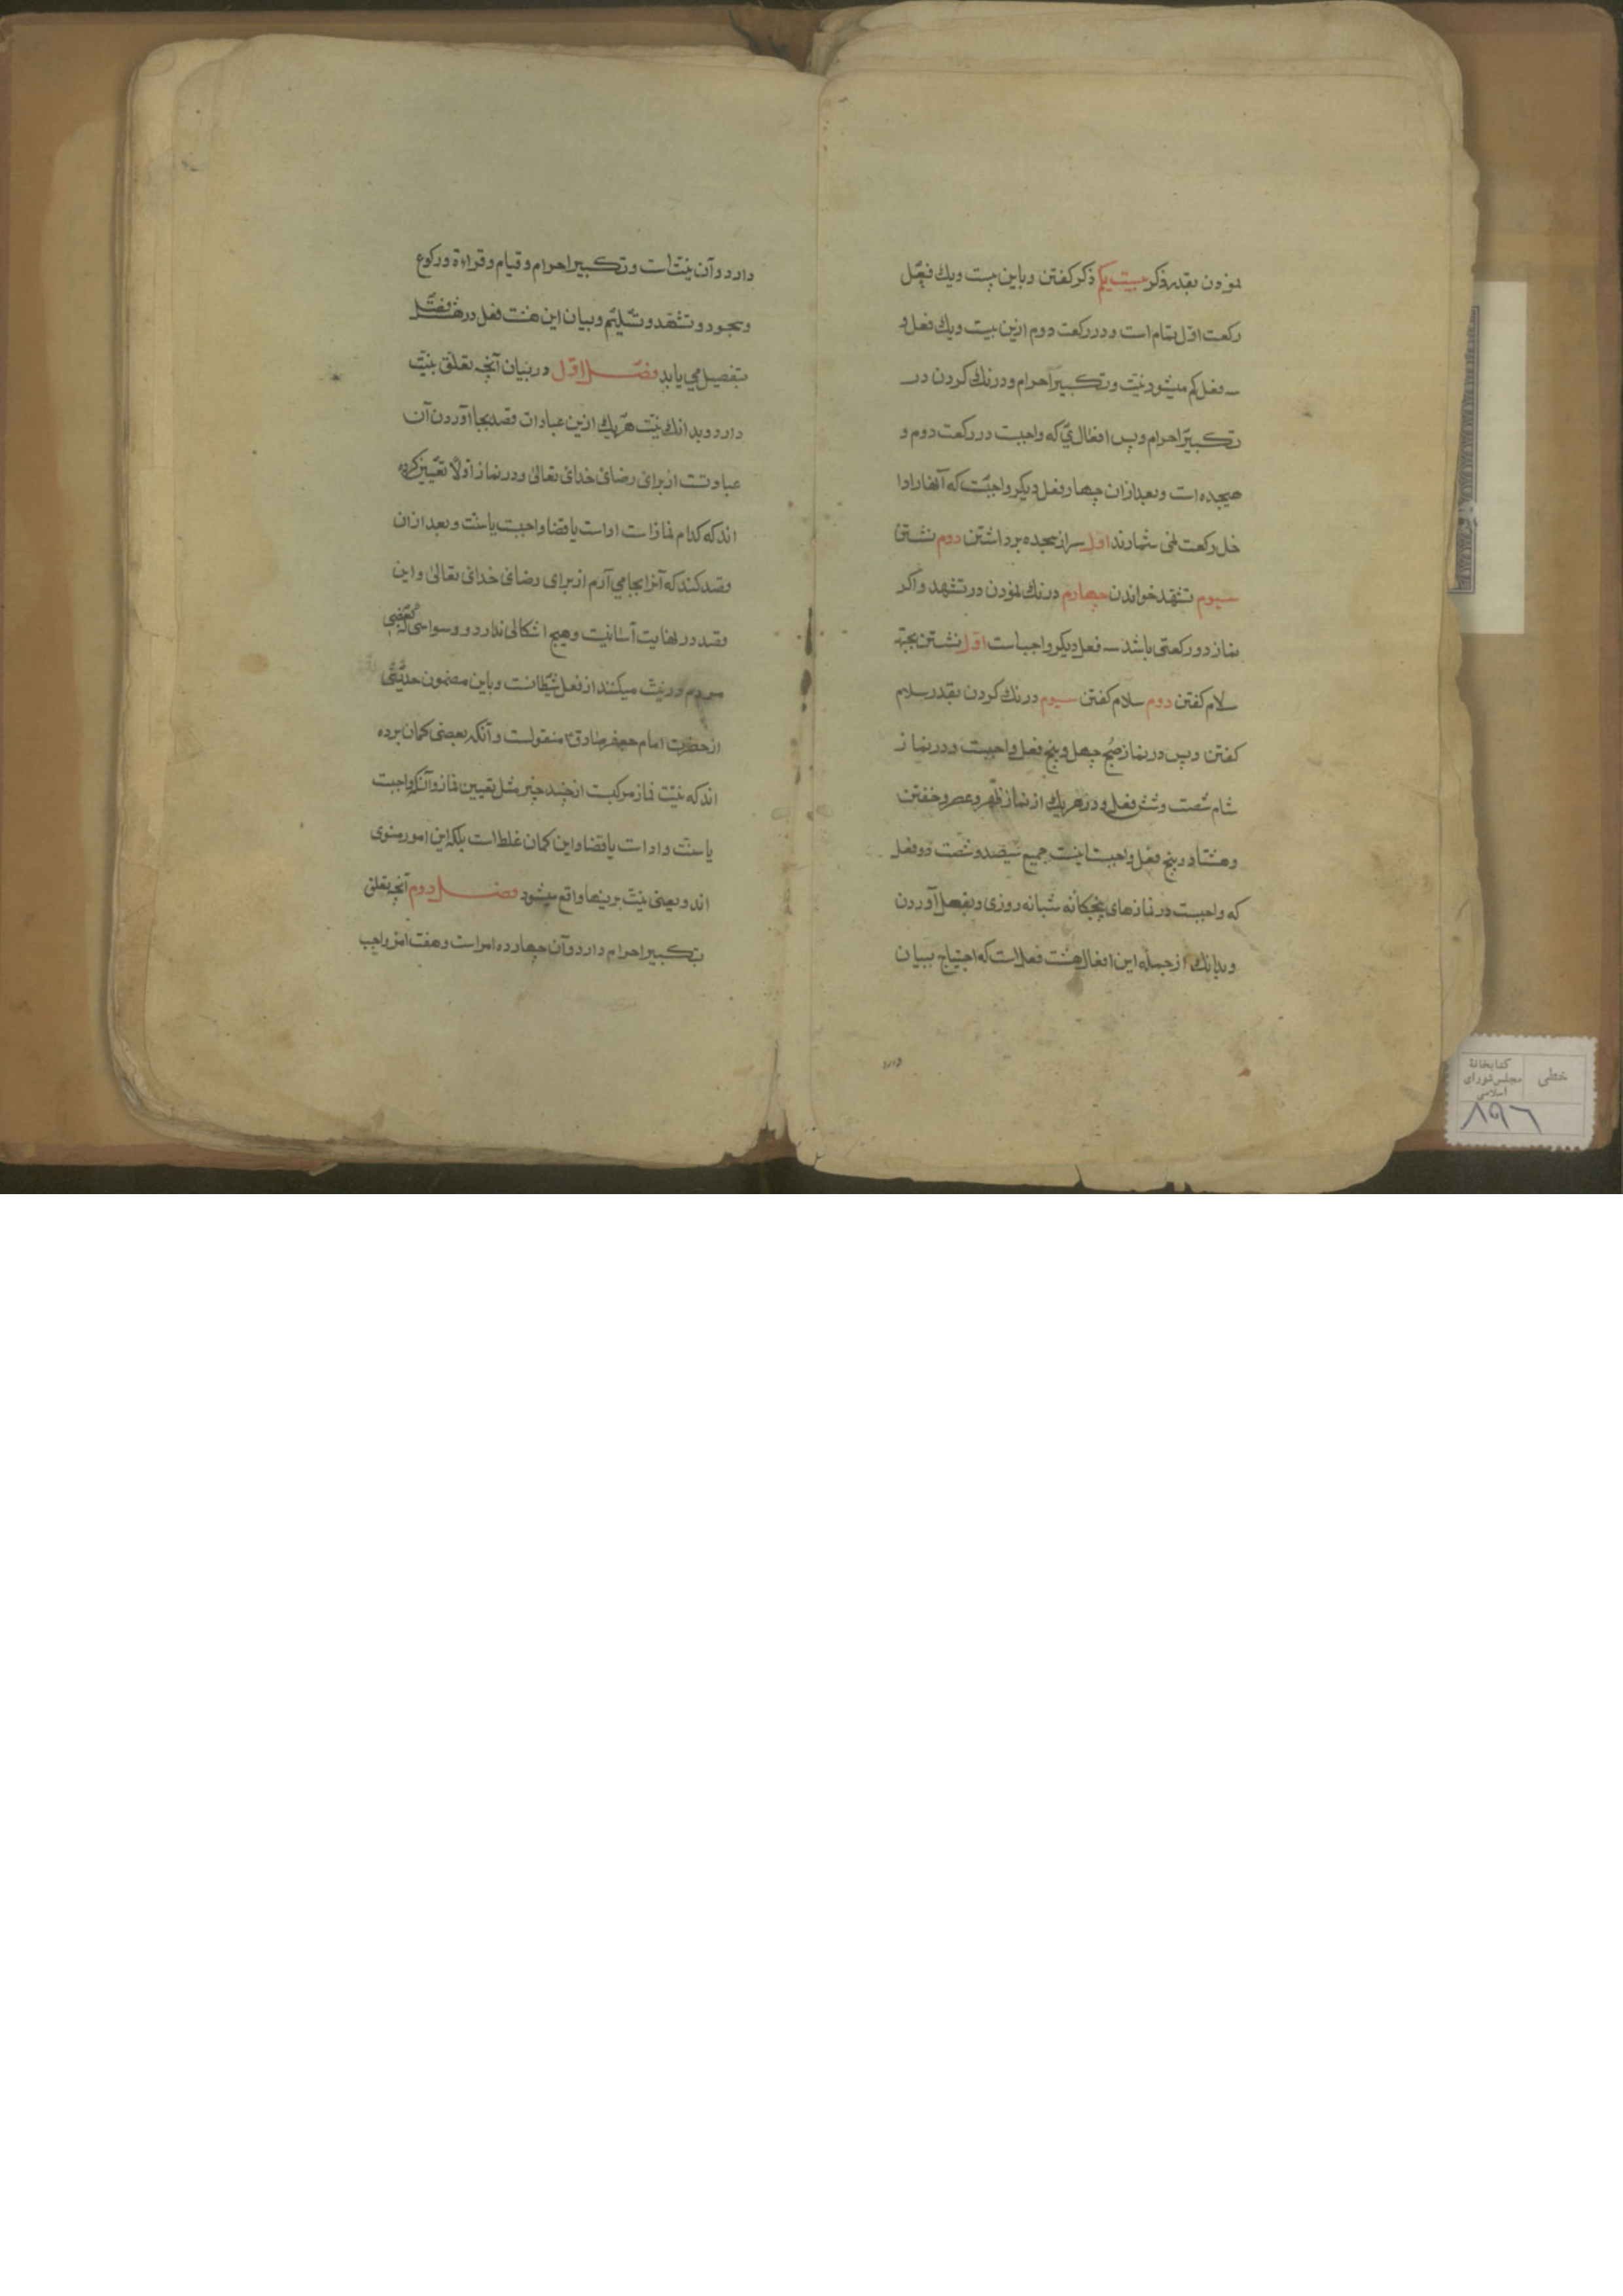 نمودن بقدر ذکر بیست یکم ذکر کفتن و باین بیست و یك فعل
رکعت اول تمام است و در رکعت دوم ازین بیست و یك فعل و
سه فعل کم میشود نیّت و تکبیر احرام و درنك کردن در
تکبیر احرام و پس افعالی که واجبست در رکعت دوم و
هیجده است و بعد ازان چهار فعل دیکر واجبست که آنها را دا
خل رکعت نمی شمارند اول سر از سجده برداشتن دوم نشستن
سیوم تشهد خواندن چهارم درنك نمودن در تشهد و اکر
نماز دو رکعتی باشد سه فعل دیکر واجب است اول نشستن بجهة
سلام کفتن دوم سلام کفتن سیوم درنك کردن بقدر سلام
کفتن و پس در نماز صبح چهل و پنج فعل واجبست و در نماز
شام شصت و شش فعل و در هر یك از نماز ظهر و عصر و خفتن
و هشتاد و پنج فعل واجبست اینست جمیع سیصد و شصت دو فعل
که واجبست در نمازهای پنجکانه شبانه روزی و بفعل آوردن
و بدانك از جمله این افعال هشت فعل است که احتیاج ببیان
دارد و آن نیّت است و تکبیر احرام و قیام و قراءة و رکوع
و سجود و تشهد و تسلیم و بیان این هشت فعل در هشت فصل
بتفصیل می یابد فصل اول در بیان آنچه تعلق بنیّت
دارد و بدانك نیّت هر یك ازین عبادات قصد بجا آوردن آن
عبادتست از برای رضای خدای تعالی و در نماز اولاً تعیین کرده
اند که کدام نماز است اداست یا قضا واجبست یا سنّت و بعد ازان
قصد کند که آنرا بجا می آرم از برای رضای خدای تعالی و این
قصد در نهایت آسانیست و هیچ اشکالی ندارد و وسواسی که بعضی
مردم در نیّت میکنند از فعل شیطانست و باین مضمون حدیثی
از حضرت امام جعفر صادق ع منقولست و آنکه بعضی کمان برده
اند که نیّت نماز مرکبست از چند چیز مثل تعیین نماز و آنکه واجبست
یا سنّت و ادا ست یا قضا و این کمان غلط است بلکه این امور منوی
اند و یعنی نیّت برینها واقع میشود فصل دوم آنچه تعلق
بتکبیر احرام دارد و آن چهارده امر است و هفت امر واجب
خطی
کتابخانهٔ
مجلس شورای
اسلامی
۸۹۶